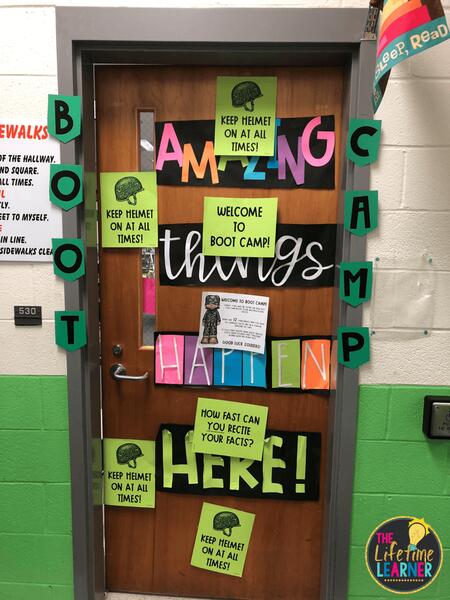 SLEEP, READ
BOOT
CAMP
KEEP HELMET
ON AT ALL
TIMES!
AMAZING
KEEP HELMET
ON AT ALL
TIMES!
WELCOME
TO
BOOT CAMP!
things
WELCOME TO BOOT CAMP!
GOOD LUCK SOLDIERS!
HAPPEN
HOW FAST CAN
YOU RECTIE
YOUR FACTS?
HERE!
KEEP HELMET
ON AT ALL
TIMES!
KEEP HELMET
ON AT ALL
TIMES!
DEWALKS
OF THE HALLWAY.
ND SQUARE.
LL TIMES.
EET TO MYSELF.
IN LINE.
SIDEWALKS CLEA
530
THE
LifeTime
LEARNER